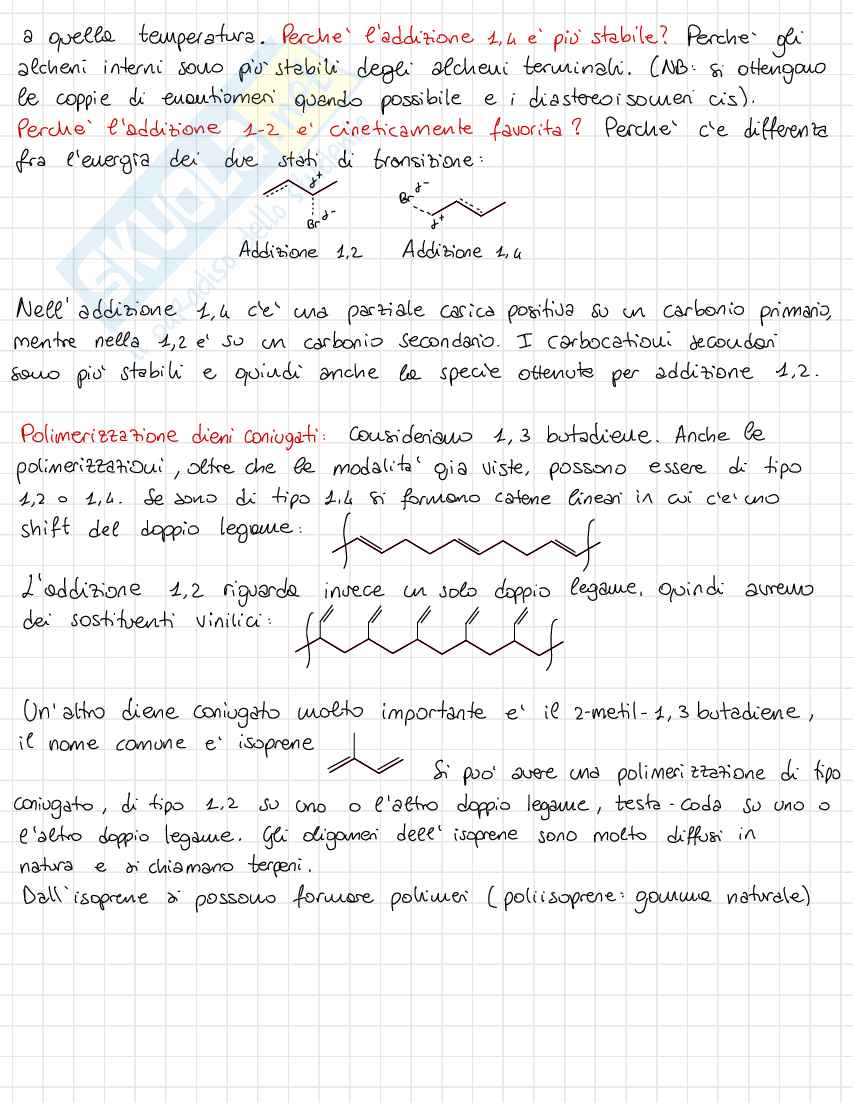 a quella temperatura. Perche' l'addizione 1,4 e' più stabile? Perche' gli
alcheni interni sono più stabili degli alcheni terminali. (NB: si ottengono
le coppie di enantiomeri quando possibile e i diastereoisomeri cis).
Perche' l'addizione 1-2 e' cineticamente favorita? Perche' c'e differenza
fra l'energia dei due stati di transizione:
δ+
Br δ-
Br δ-
δ+
Addizione 1,2 Addizione 1,4
Nell'addizione 1,4 c'e' una parziale carica positiva su un carbonio primario,
mentre nella 1,2 e' su un carbonio secondario. I carbocationi secondari
sono più stabili e quindi anche le specie ottenute per addizione 1,2.
Polimerizzazione dieni coniugati: Consideriamo 1,3 butadiene. Anche le
polimerizzazioni, oltre che le modalita' gia viste, possono essere di tipo
1,2 o 1,4. Se sono di tipo 1,4 si formano catene lineari in cui c'e' uno
shift del doppio legame:
L'addizione 1,2 riguarda invece un solo doppio legame, quindi avremo
dei sostituenti vinilici:
Un'altro diene coniugato molto importante e' il 2-metil-1,3 butadiene,
il nome comune e' isoprene
Si puo' avere una polimerizzazione di tipo
coniugato, di tipo 1,2 su uno o l'altro doppio legame, testa-coda su uno o
l'altro doppio legame. Gli oligomeri dell'isoprene sono molto diffusi in
natura e si chiamano terpeni.
Dall'isoprene si possono formare polimeri (poliisoprene: gomma naturale)
SKUOLA.net
il paradiso dello studente